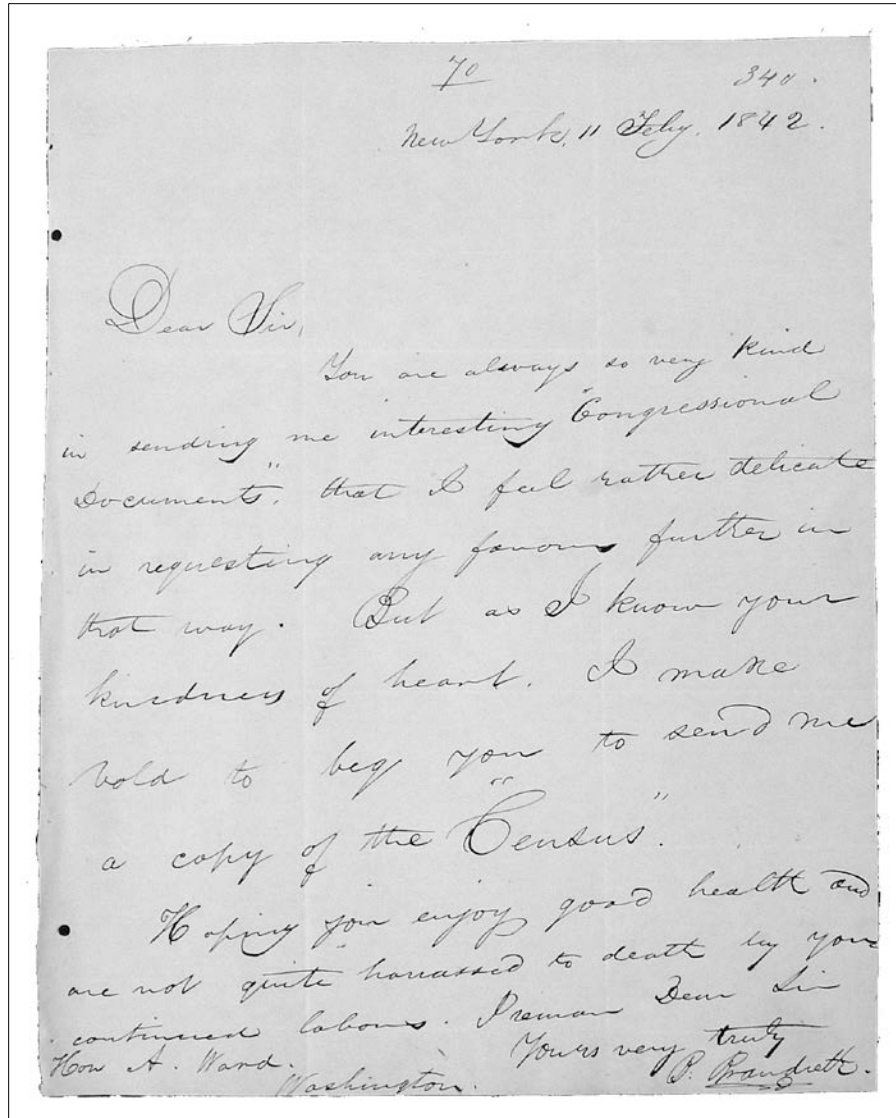 70 340.
New York, 11 Feby. 1842.
Dear Sir,
You are always so very kind
in sending me interesting "Congressional
Documents". that I feel rather delicate
in requesting any favours further in
that way. But as I know your
kindness of heart. I make
bold to beg you to send me
a copy of the "Census".
Hoping you enjoy good health and
are not quite harrassed to death by your
continued labours. I remain Dear Sir
Yours very truly
Hon A. Ward. B. Brandreth.
Washington.